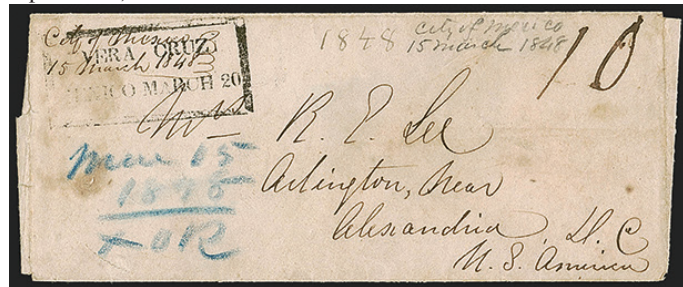 City of Mexico
15 March 1848
VERA CRUZ
MEXICO MARCH 20
1848 City of Mexico
15 March 1848
10
Mrs R. E. Lee
Arlington, Near
Alexandria D. C
U. S. America
Mar 15
1848